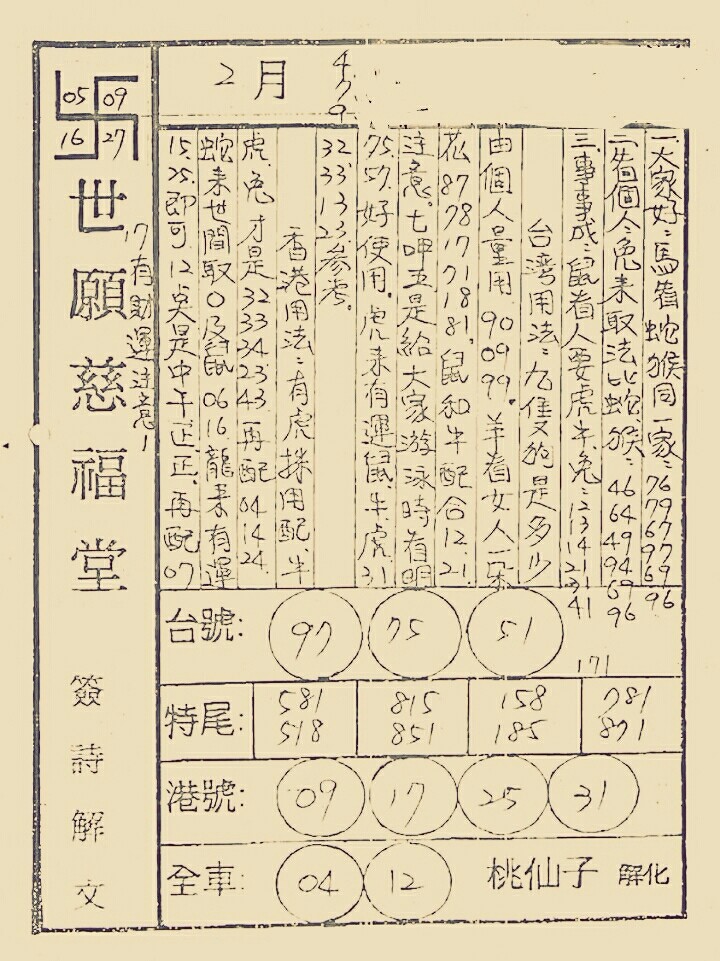 2月
479
一、大家好:馬看蛇猴同一家:
二、看個人兔來取法比蛇猴:46 64 49 94 69 96
三、事事成:鼠看人要虎牛兔:12 13 14 21 31 41
171
台灣用法:九隻狗是多少
由個人量用.90 09 99。羊看女人一朵
花.87 78 17 71 18 81.鼠和牛配合12.21.
注意。七呷五是給大家游泳時看明
75.57.好使用.虎來有運鼠.牛.虎.31
32 33 13 23參考。
香港用法:有虎採用配.半
虎.兔才是32 33 34 23 43再配04 14 24
蛇來世間取0及鼠06 16.龍來有運
15.25.即可.12点是中午正正.再配07
17有財運注意!
05 09
16 27
世願慈福堂
簽詩解文
台號: 97 75 51
特尾: 581 815 158 781
518 851 185 871
港號: 09 17 25 31
全車: 04 12 桃仙子 解化